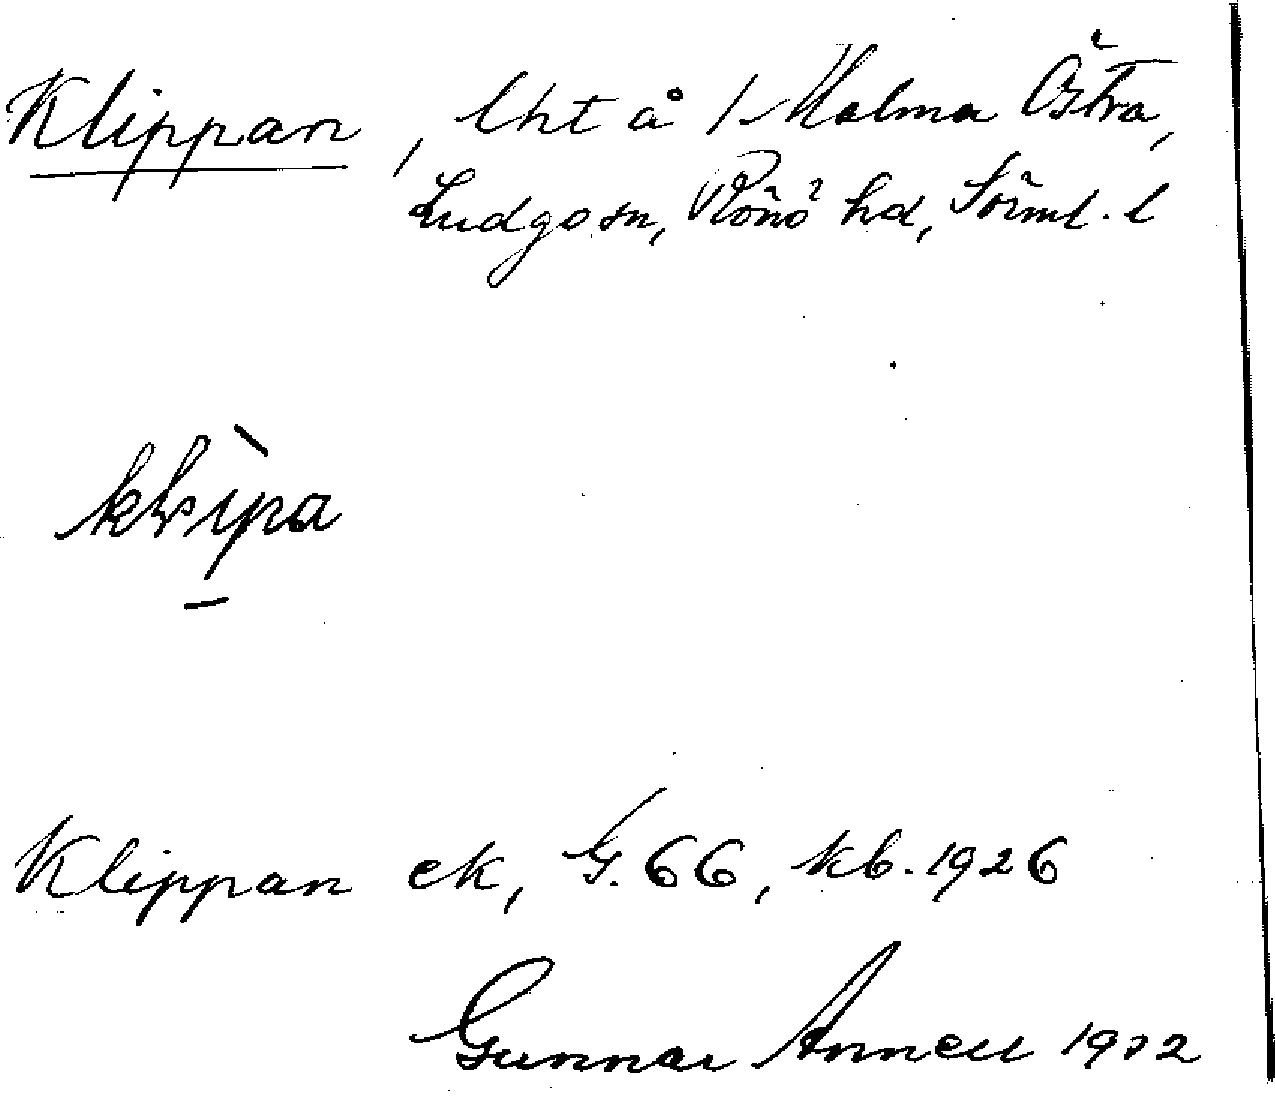 Klippan, lht å 1 Malma Östra,
Ludgo sn, Rönö hd, Sörml. l
klìpa
Klippan ek, G. 66, kb. 1926
Gunnar Annell 1932